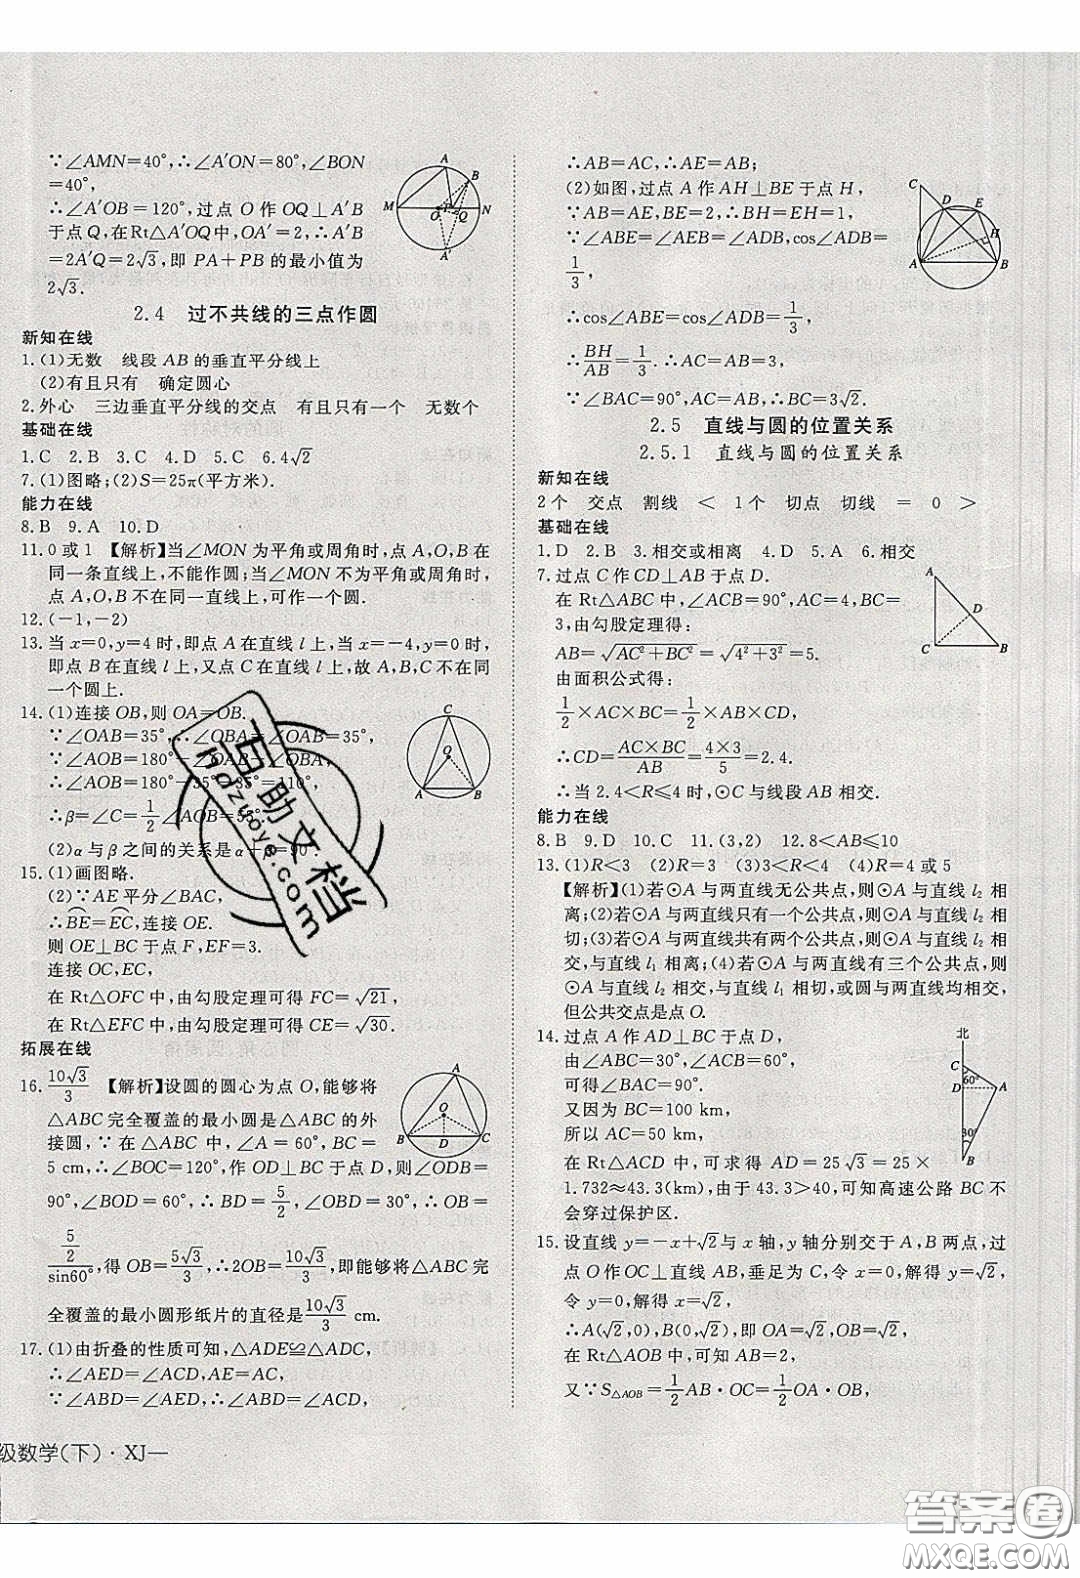 ∵∠AMN=40°,∴∠A′ON=80°,∠BON
=40°,
∴∠A′OB=120°,过点 O 作 OQ⊥A′B
于点 Q,在 Rt△A′OQ 中,OA′=2,∴A′B
=2A′Q=2√3,即 PA+PB 的最小值为
2√3.
M O P Q N B A′
2.4 过不共线的三点作圆
新知在线
1.(1)无数 线段 AB 的垂直平分线上
(2)有且只有 确定圆心
2.外心 三边垂直平分线的交点 有且只有一个 无数个
基础在线
1.C 2.B 3.C 4.D 5.C 6.4√2
7.(1)图略;(2)S=25π(平方米).
能力在线
8.B 9.A 10.D
11.0 或 1 【解析】当∠MON 为平角或周角时,点 A,O,B 在
同一条直线上,不能作圆;当∠MON 不为平角或周角时,
点 A,O,B 不在同一直线上,可作一个圆.
12.(-1,-2)
13.当 x=0,y=4 时,即点 A 在直线 l 上,当 x=-4,y=0 时,
即点 B 在直线 l 上,又点 C 在直线 l 上,故 A,B,C 不在同
一个圆上.
14.(1)连接 OB,则 OA=OB.
∵∠OAB=35°,∴∠OBA=∠OAB=35°,
∴∠AOB=180°-∠OAB-∠OBA,
∴∠AOB=180°-35°-35°=110°,
∴β=∠C=1/2∠AOB=55°.
(2)α 与 β 之间的关系是 α+β=90°.
C O A B
15.(1)画图略.
(2)∵AE 平分∠BAC,
∴BE=EC,连接 OE.
则 OE⊥BC 于点 F,EF=3.
连接 OC,EC,
在 Rt△OFC 中,由勾股定理可得 FC=√21,
在 Rt△EFC 中,由勾股定理可得 CE=√30.
拓展在线
16. 10√3/3 【解析】设圆的圆心为点 O,能够将
△ABC 完全覆盖的最小圆是△ABC 的外
接圆,∵ 在△ABC 中,∠A=60°,BC=
5 cm,∴∠BOC=120°,作 OD⊥BC 于点 D,则∠ODB=
90°,∠BOD=60°,∴BD=5/2,∠OBD=30°,∴OB=
5/2/sin60°,得 OB=5√3/3,∴2OB=10√3/3,即△ABC 完
全覆盖的最小圆形纸片的直径是10√3/3 cm.
A O B D C
17.(1)由折叠的性质可知,△ADE≌△ADC,
∴∠AED=∠ACD,AE=AC,
∵∠ABD=∠AED,∴∠ABD=∠ACD,
∴AB=AC,∴AE=AB;
(2)如图,过点 A 作 AH⊥BE 于点 H,
∵AB=AE,BE=2,∴BH=EH=1,
∵∠ABE=∠AEB=∠ADB,cos∠ADB=
1/3,
∴cos∠ABE=cos∠ADB=1/3,
∴BH/AB=1/3.∴AC=AB=3,
∵∠BAC=90°,AC=AB,∴BC=3√2.
C D E H A B
2.5 直线与圆的位置关系
2.5.1 直线与圆的位置关系
新知在线
2个 交点 割线 < 1个 切点 切线 = 0 >
基础在线
1.D 2.B 3.相交或相离 4.D 5.A 6.相交
7.过点 C 作 CD⊥AB 于点 D.
在 Rt△ABC 中,∠ACB=90°,AC=4,BC=
3,由勾股定理得:
AB=√AC²+BC²=√4²+3²=5.
由面积公式得:
1/2×AC×BC=1/2×AB×CD,
∴CD=AC×BC/AB=4×3/5=2.4.
∴当 2.4<R≤4 时,⊙C 与线段 AB 相交.
A D C B
能力在线
8.B 9.D 10.C 11.(3,2) 12.8<AB≤10
13.(1)R<3 (2)R=3 (3)3<R<4 (4)R=4 或 5
【解析】(1)若⊙A 与两直线无公共点,则⊙A 与直线 l₂ 相
离;(2)若⊙A 与两直线只有一个公共点,则⊙A 与直线 l₂ 相
切;(3)若⊙A 与两直线共有两个公共点,则⊙A 与直线 l₂ 相
交,与直线 l₁ 相离;(4)若⊙A 与两直线有三个公共点,则
⊙A 与直线 l₂ 相交,与直线 l₁ 相切,或圆与两直线均相交,
但公共交点是点 O.
14.过点 A 作 AD⊥BC 于点 D,
由∠ABC=30°,∠ACB=60°,
可得∠BAC=90°.
又因为 BC=100 km,
所以 AC=50 km,
在 Rt△ACD 中,可求得 AD=25√3=25×
1.732≈43.3(km),由于 43.3>40,可知高速公路 BC 不
会穿过保护区.
北 C 60° D A 30° B
15.设直线 y=-x+√2与 x 轴,y 轴分别交于 A,B 两点,过
点 O 作 OC⊥直线 AB,垂足为 C,令 x=0,解得 y=√2,
令 y=0,解得 x=√2,
∴A(√2,0),B(0,√2),即 OA=√2,OB=√2,
在 Rt△AOB 中,可知 AB=2,
又∵S△AOB=1/2AB·OC=1/2OA·OB,
级数学(下)·XJ—
百助文档
nazuoye.com
答案卷
MXQE.COM